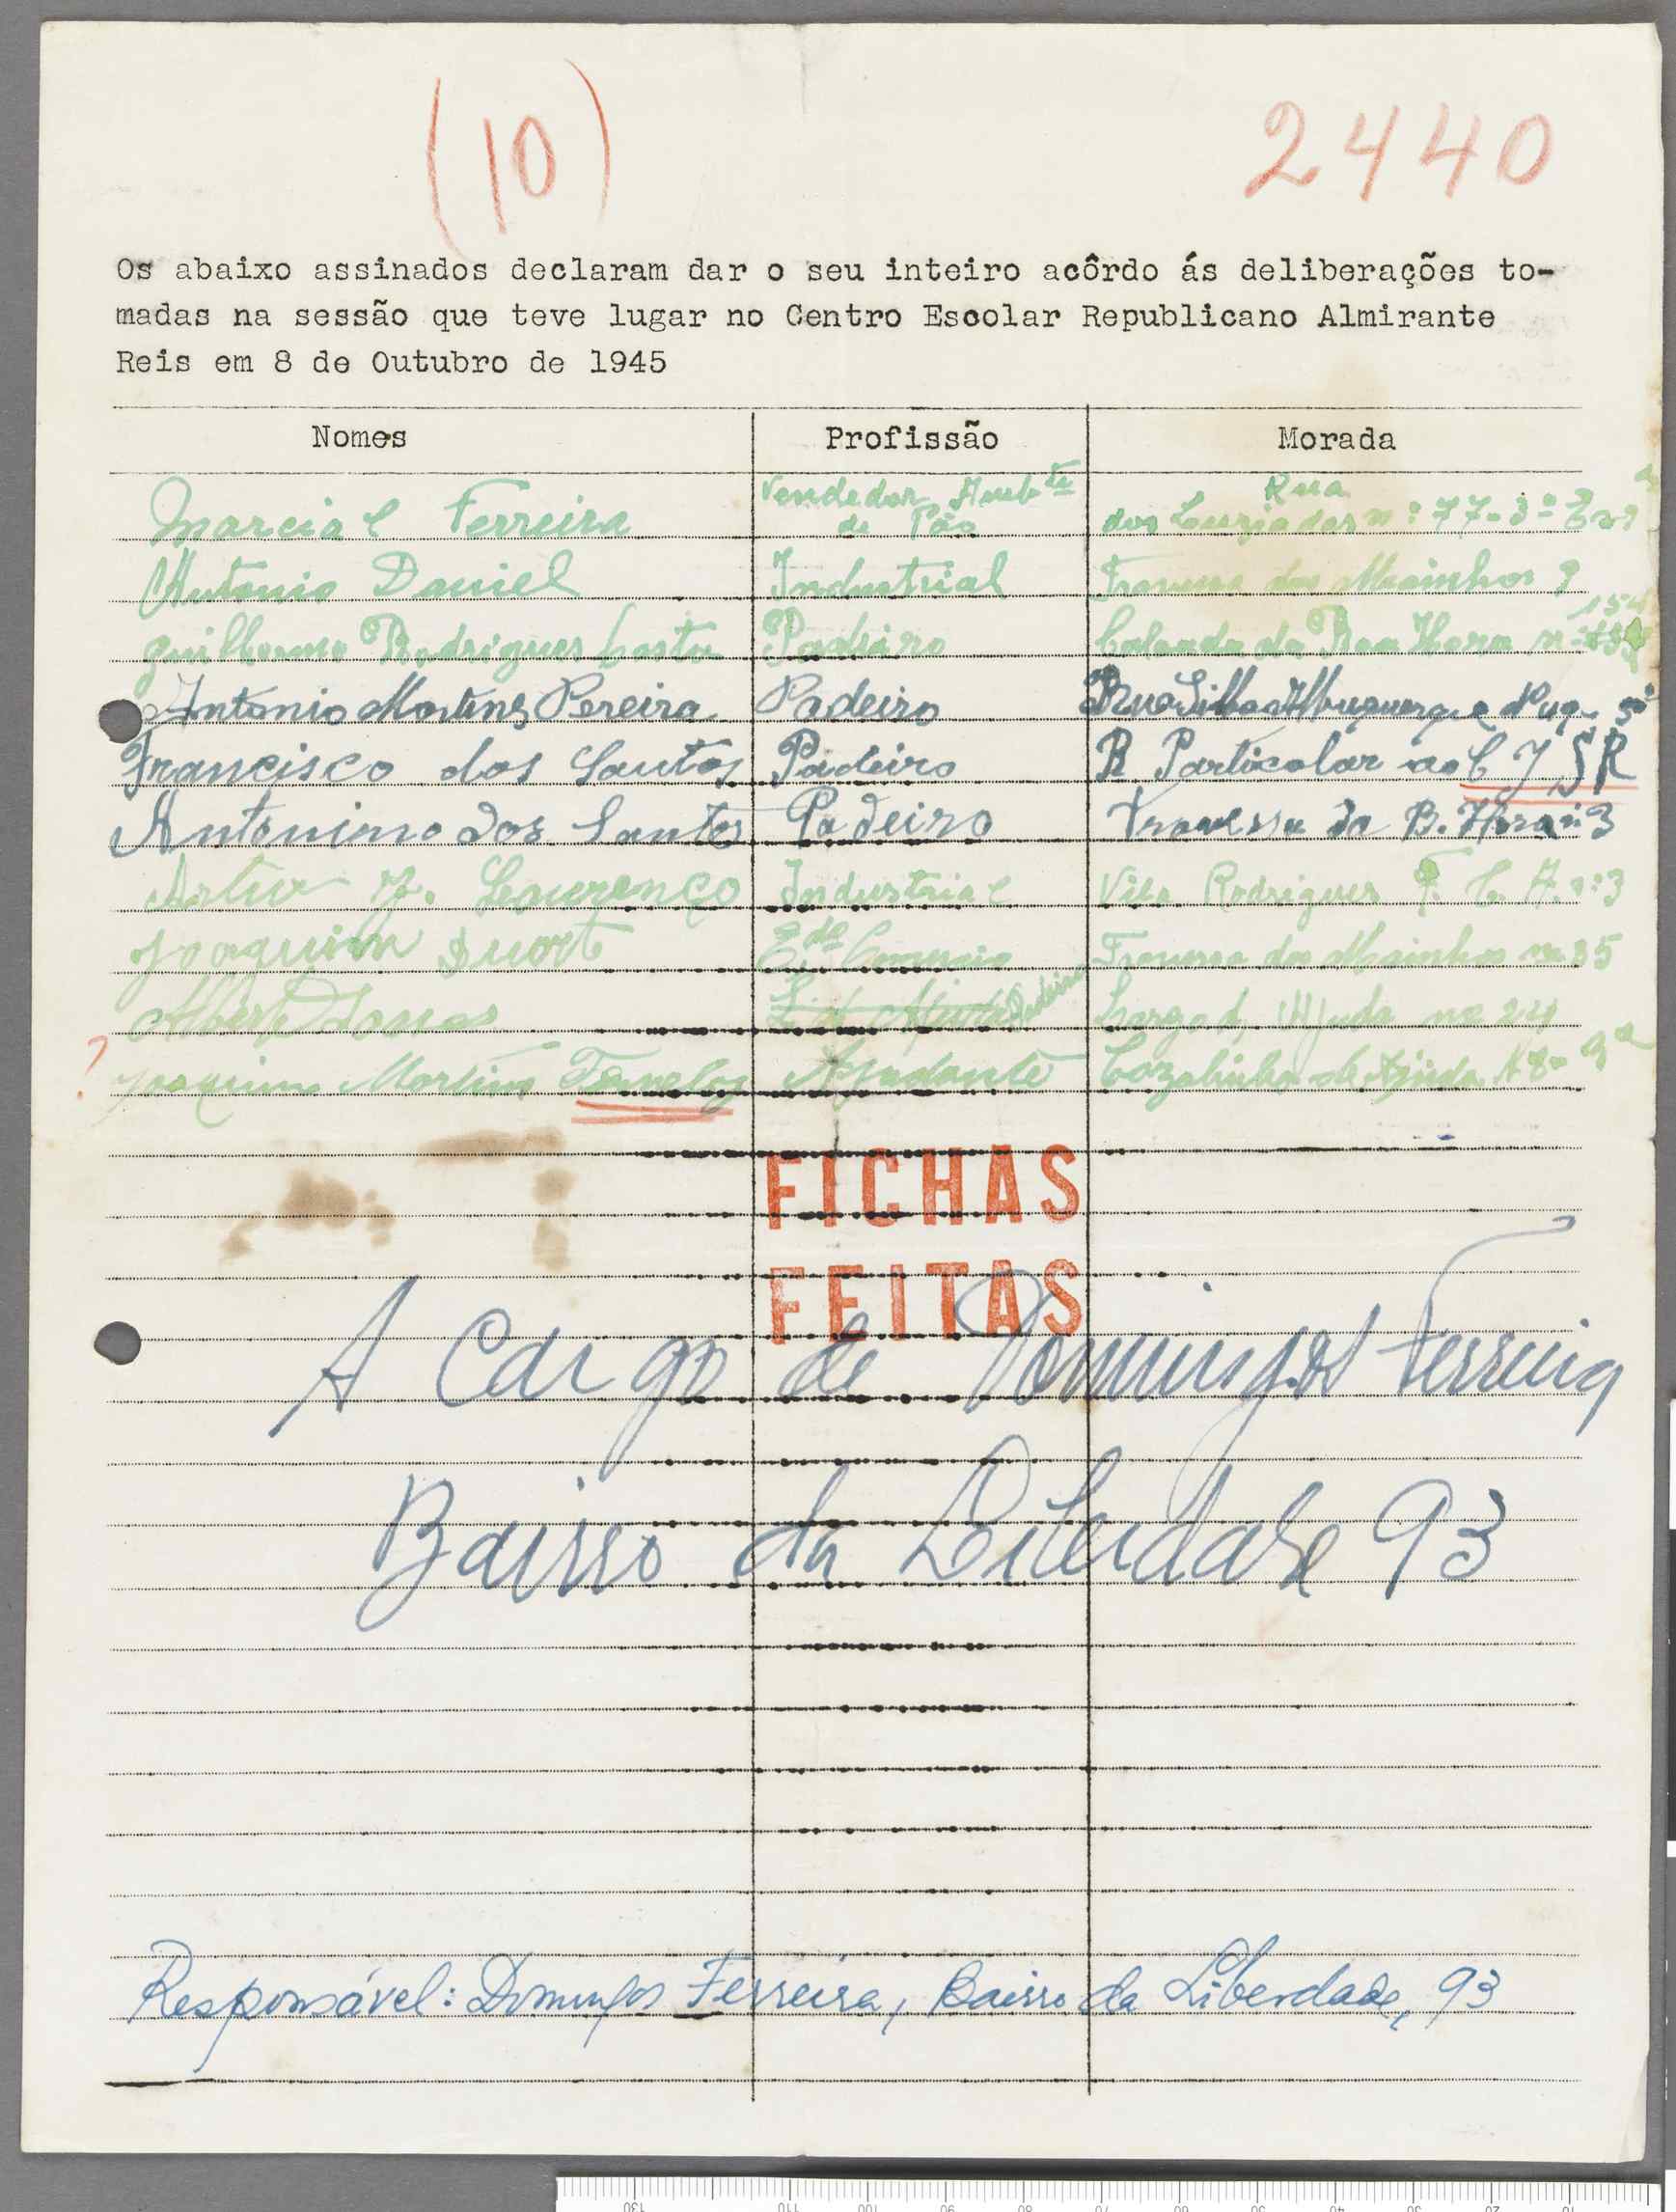 (10)
2440
Os abaixo assinados declaram dar o seu inteiro acôrdo ás deliberações to-
madas na sessão que teve lugar no Centro Escolar Republicano Almirante
Reis em 8 de Outubro de 1945
Nomes Profissão Morada
Marcial Ferreira Vendedor Amb te de Pão Rua dos Luziadas nº 77-3º
Antonio Daniel Industrial Travessa dos Moinhos 9
Guilherme Rodrigues Costa Padeiro Calçada da Boa Hora nº 154
Antonio Martins Pereira Padeiro Rua
Francisco dos Santos Padeiro R Particolar ao C J S R
Antonino dos Santos Padeiro Travessa da B. Hora nº 3
Artur Lourenço Industrial Vila Rodrigues T. C. A. nº 3
Joaquim Duort E. do Comercio Travessa dos Moinhos nº 35
Padeiro Largo d, Ajuda nº 24
? Joaquim Martins Ajudante de Ajuda
FICHAS
FEITAS
A Cargo de Domingos Ferreira
Bairro da Liberdade 93
Responsável: Domingos Ferreira, Bairro da Liberdade, 93